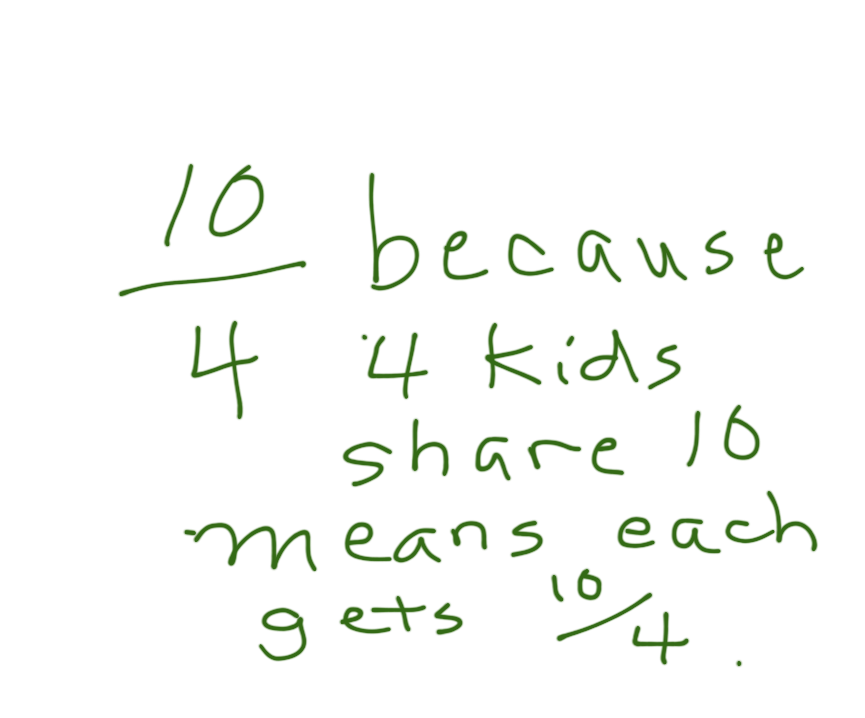 10/4 because
4 kids
share 10
means each
gets 10/4.